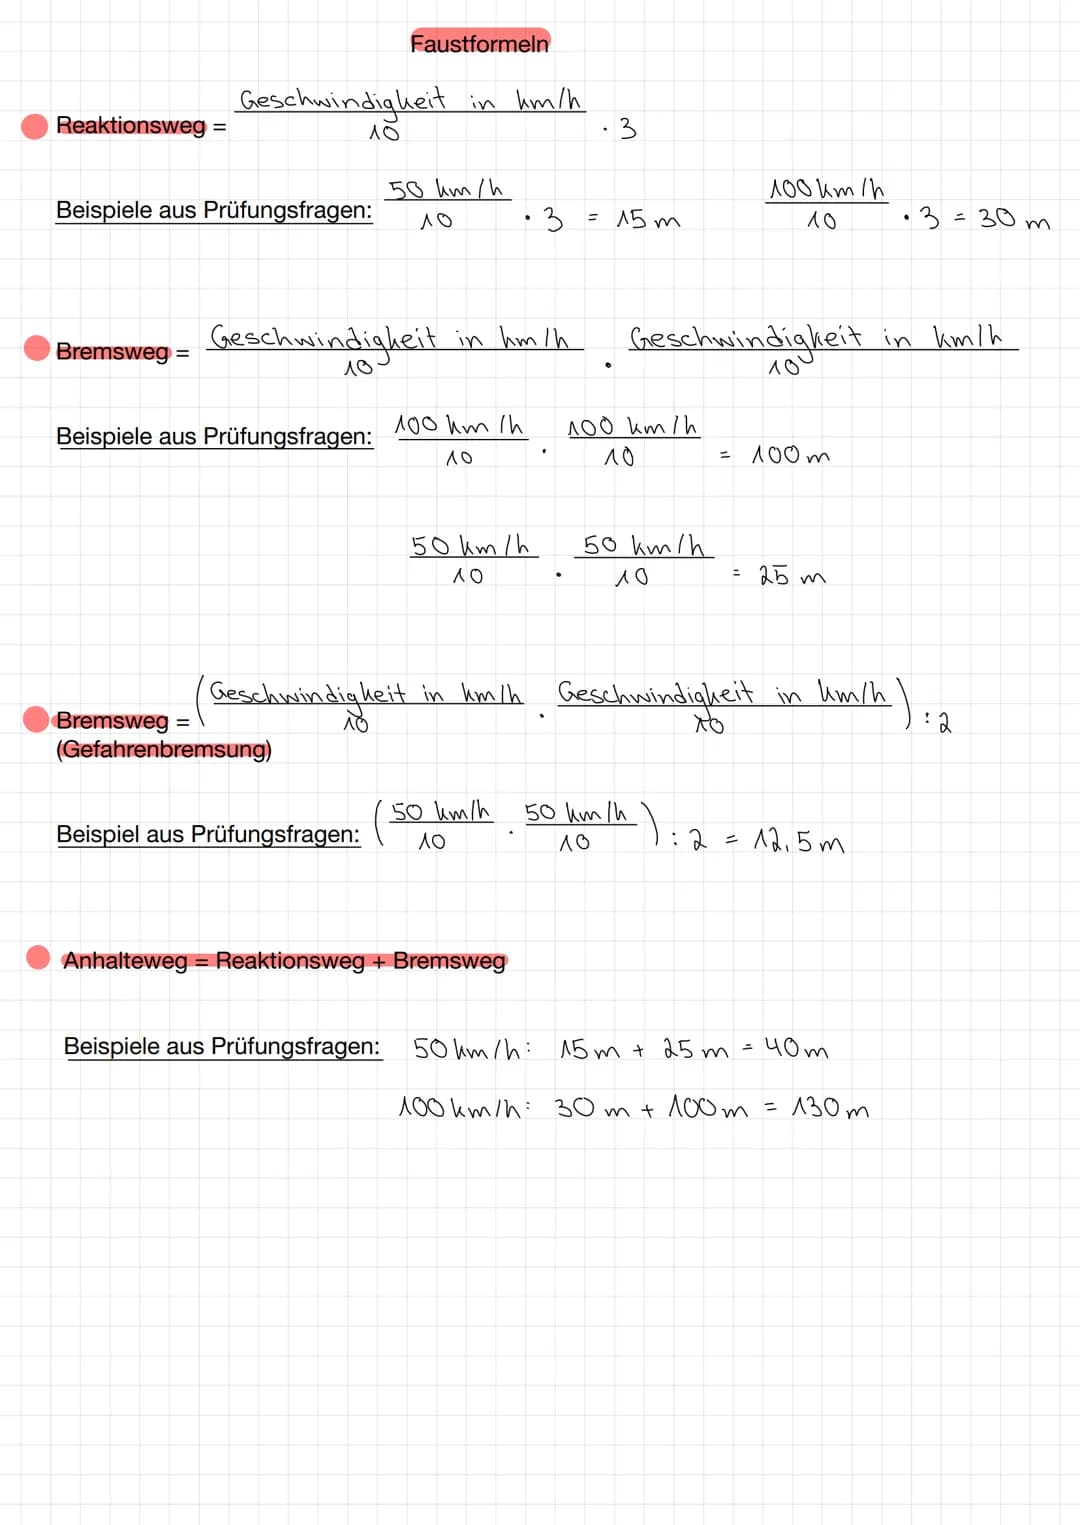 Faustformeln
Reaktionsweg = Geschwindigkeit in km/h / 10 · 3
Beispiele aus Prüfungsfragen: 50 km/h / 10 · 3 = 15 m 100 km/h / 10 · 3 = 30 m
Bremsweg = Geschwindigkeit in km/h / 10 · Geschwindigkeit in km/h / 10
Beispiele aus Prüfungsfragen: 100 km/h / 10 · 100 km/h / 10 = 100 m
50 km/h / 10 · 50 km/h / 10 = 25 m
Bremsweg = (Geschwindigkeit in km/h / 10 · Geschwindigkeit in km/h / 10) : 2
(Gefahrenbremsung)
Beispiel aus Prüfungsfragen: (50 km/h / 10 · 50 km/h / 10) : 2 = 12,5 m
Anhalteweg = Reaktionsweg + Bremsweg
Beispiele aus Prüfungsfragen: 50 km/h: 15 m + 25 m = 40 m
100 km/h: 30 m + 100 m = 130 m